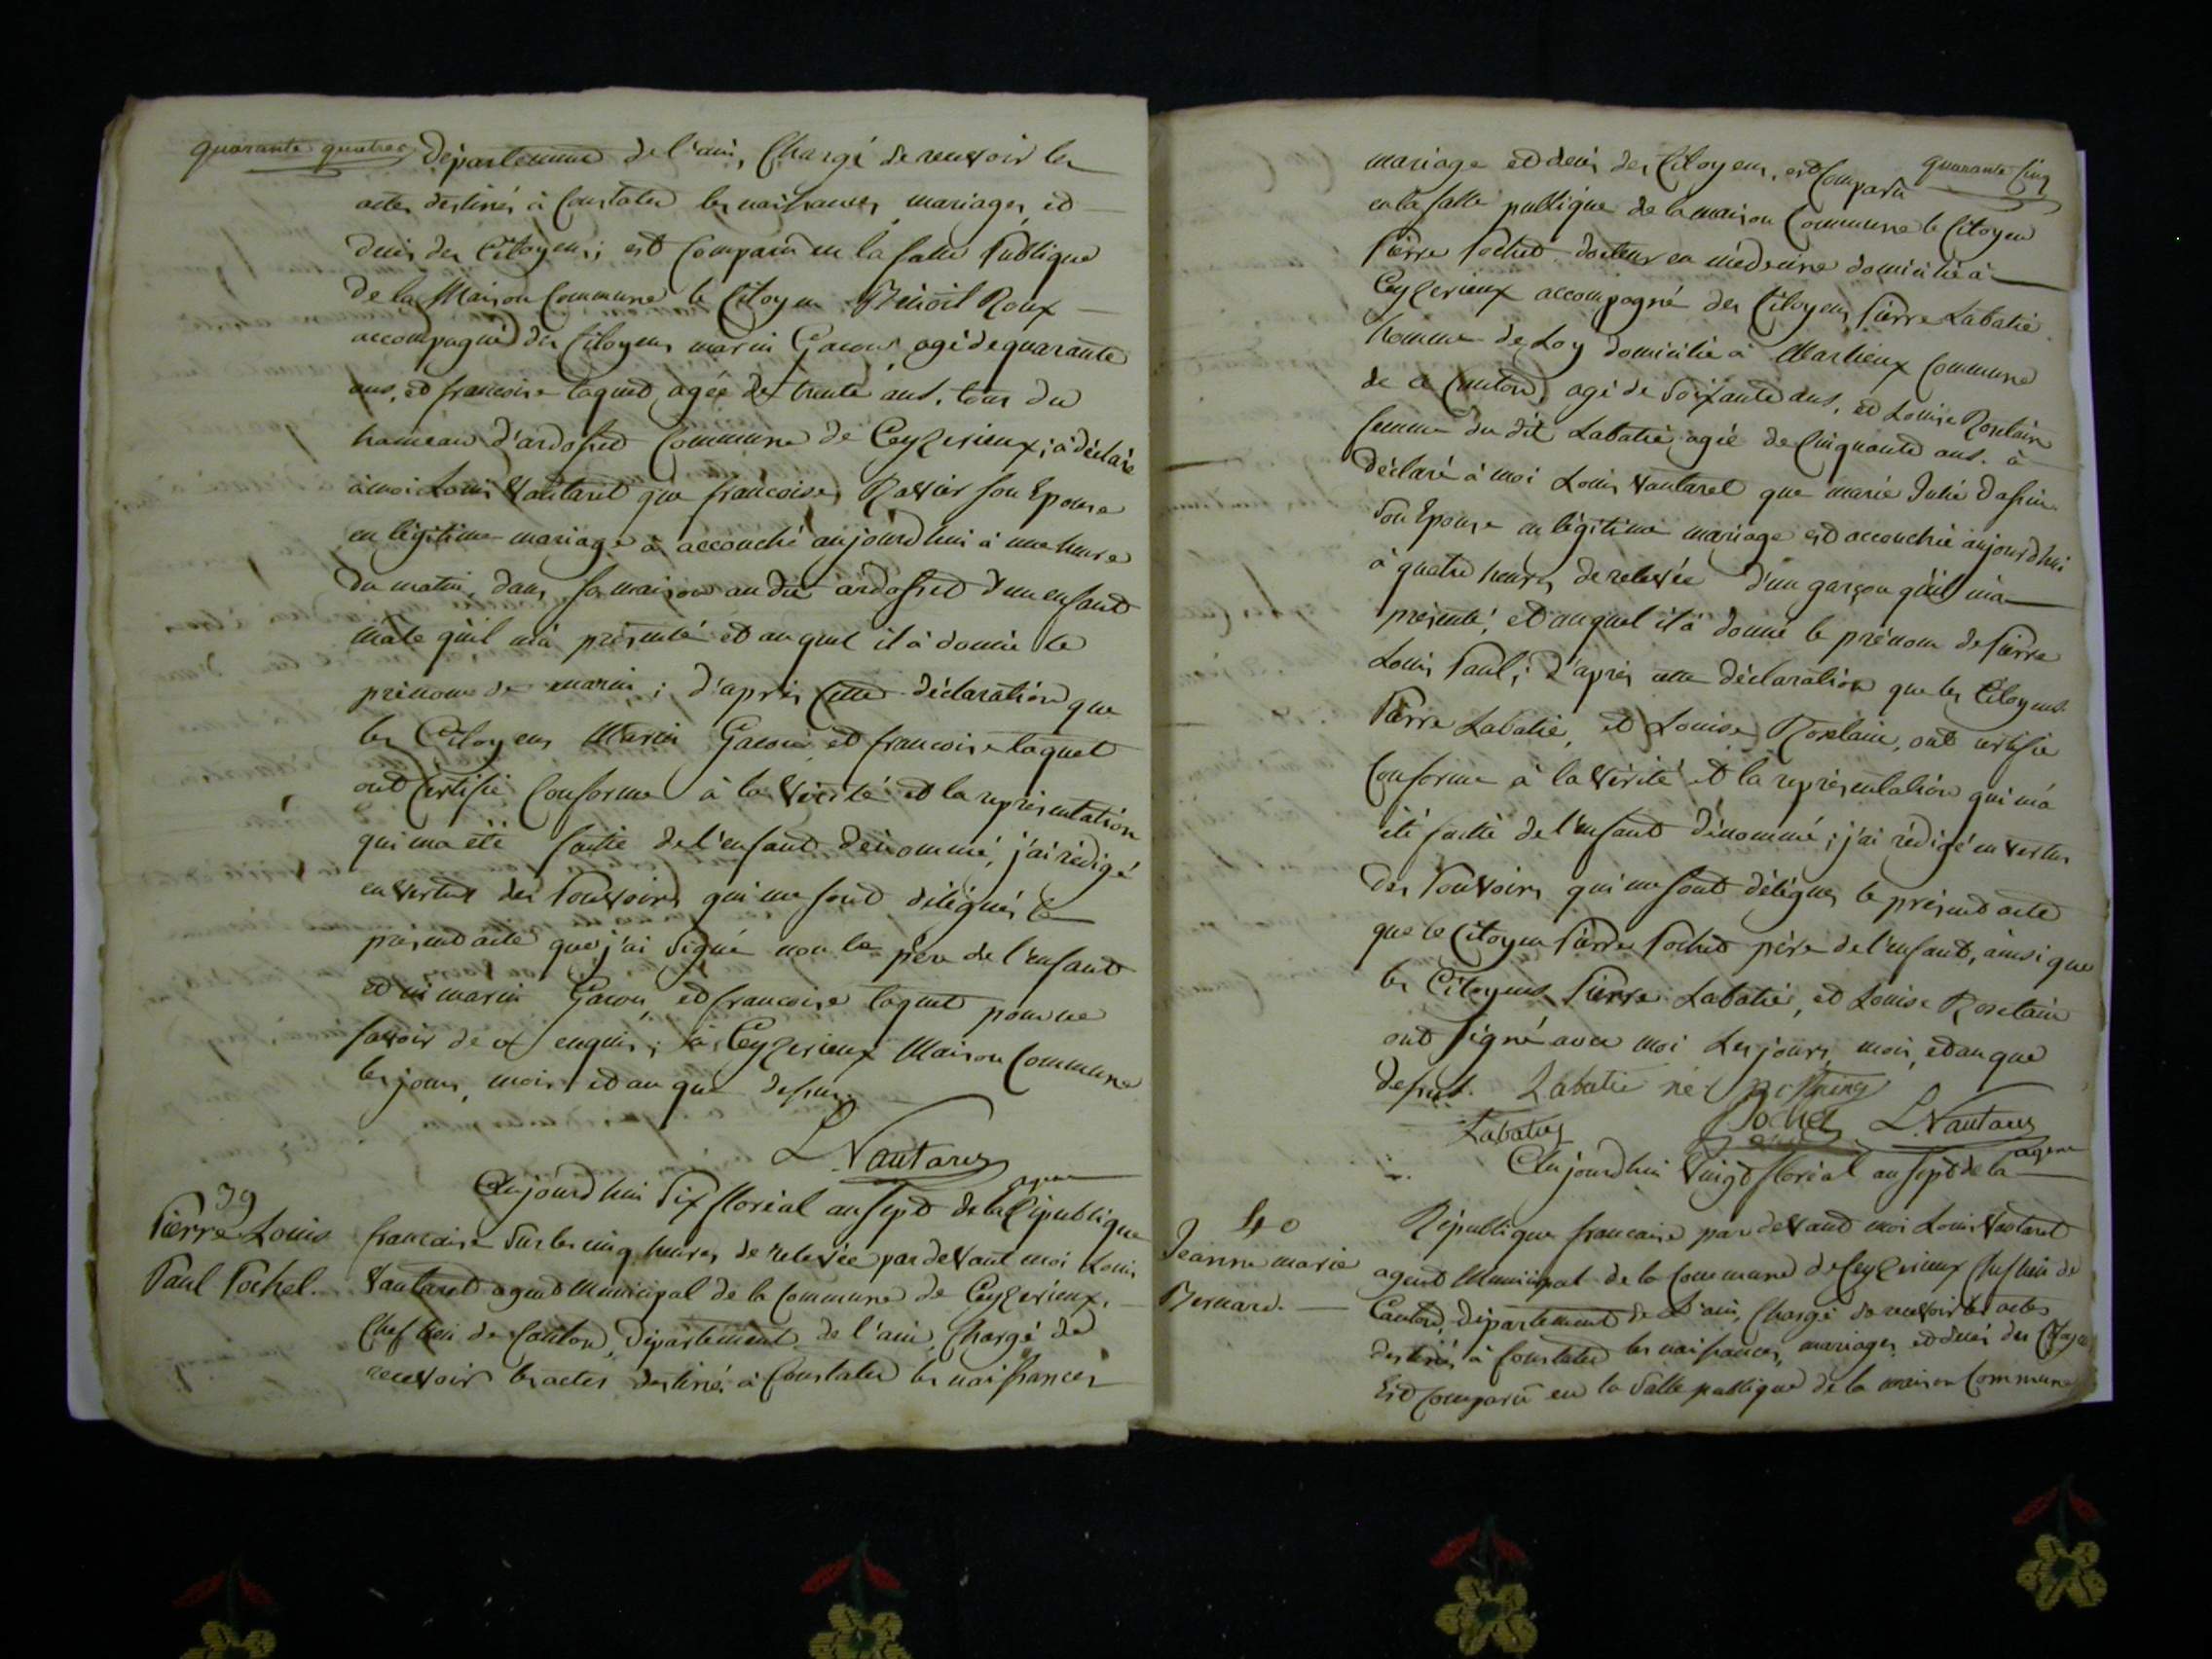 quarante quatre
département de l'ain, Chargé de recevoir les
actes destinés à Constater les naissances, mariages, et
decés des Citoyens; est Comparu en la salle Publique
de la Maison Commune le Citoyen Bénoit Roux
accompagné des Citoyens marin Gacon agé de quarante
ans, et francoise taquet agée de trente ans, tous du
hameau d'ardosset Commune de Ceyzerieux; à déclaré
à moi Louis Vantaret que francoise Ravier son Epouse
en légitime mariage à accouché aujourdhui à une heure
du matin, dans sa maison au dit ardosset d'un enfant
male qu'il m'à présenté et au quel il à donné le
prénom de marin; d'après cette déclaration que
les Citoyens Marin Gacon et francoise taquet
ont Certifié Conforme à la Vérité et la représentation
qui ma été faitte de l'enfant dénommé, j'ai rédigé
en vertus des Pouvoirs qui me sont délégués le
présent acte que j'ai signé non le père de l'enfant
et ni marin Gacon, et francoise taquet pour ne
savoir de ce enquis; à Ceyzerieux Maison Commune
les jours, mois et an que dessus.
L. Vantaret
agent
39
Pierre Louis
Paul Pochet.
Aujourdhui Six floréal an Sept de la République
francaise Sur les cinq heures de relevée par devant moi Louis
Vantaret agent Municipal de la Commune de Ceyzerieux,
Chef lieu de Canton, Département de l'ain, Chargé de
recevoir les actes destinés à Constater les naissances
quarante cinq
mariage et decés des Citoyens, est Comparû
en la salle publique de la maison Commune le Citoyen
Pierre Pochet docteur en médecine domicilié à
Ceyzerieux accompagné des Citoyens Pierre Labatie
homme de Loy domicilié à Marlieux Commune
de ce Canton, agé de Soixante ans, et Louise Rostain
femme du dit Labatie agée de Cinquante ans. à
déclaré à moi Louis Vantaret que marie Julie
son Epouse en légitime mariage est accouchée aujourdhui
à quatre heures de relevée d'un garçon qu'il m'a
présenté, et auquel il à donné le prénom de Pierre
Louis Paul; d'après cette déclaration que les Citoyens
Pierre Labatie, et Louise Rostain, ont certifié
Conforme à la Vérité et la représentation qui m'a
été faitte de l'enfant dénommé; j'ai rédigé en vertus
des Pouvoirs qui me sont délégués le présent acte
que le Citoyen Pierre Pochet père de l'enfant, ainsi que
les Citoyens Pierre Labatie, et Louise Rostain
ont signé avec moi Les jours, mois, et an que
dessus. Labatie né
Labatie Pochet L. Vantaret
agent
40
Jeanne marie
Bernard.
Aujourdhui Vingt floréal an sept de la
République francaise par devant moi Louis Vantaret
agent Municipal de la Commune de Ceyzerieux Chef lieu de
Canton, Département de L'ain, Chargé de recevoir les actes
destinés à Constater les naissances, mariages et decés des Citoyens
Est Comparû en la Salle publique de la maison Commune